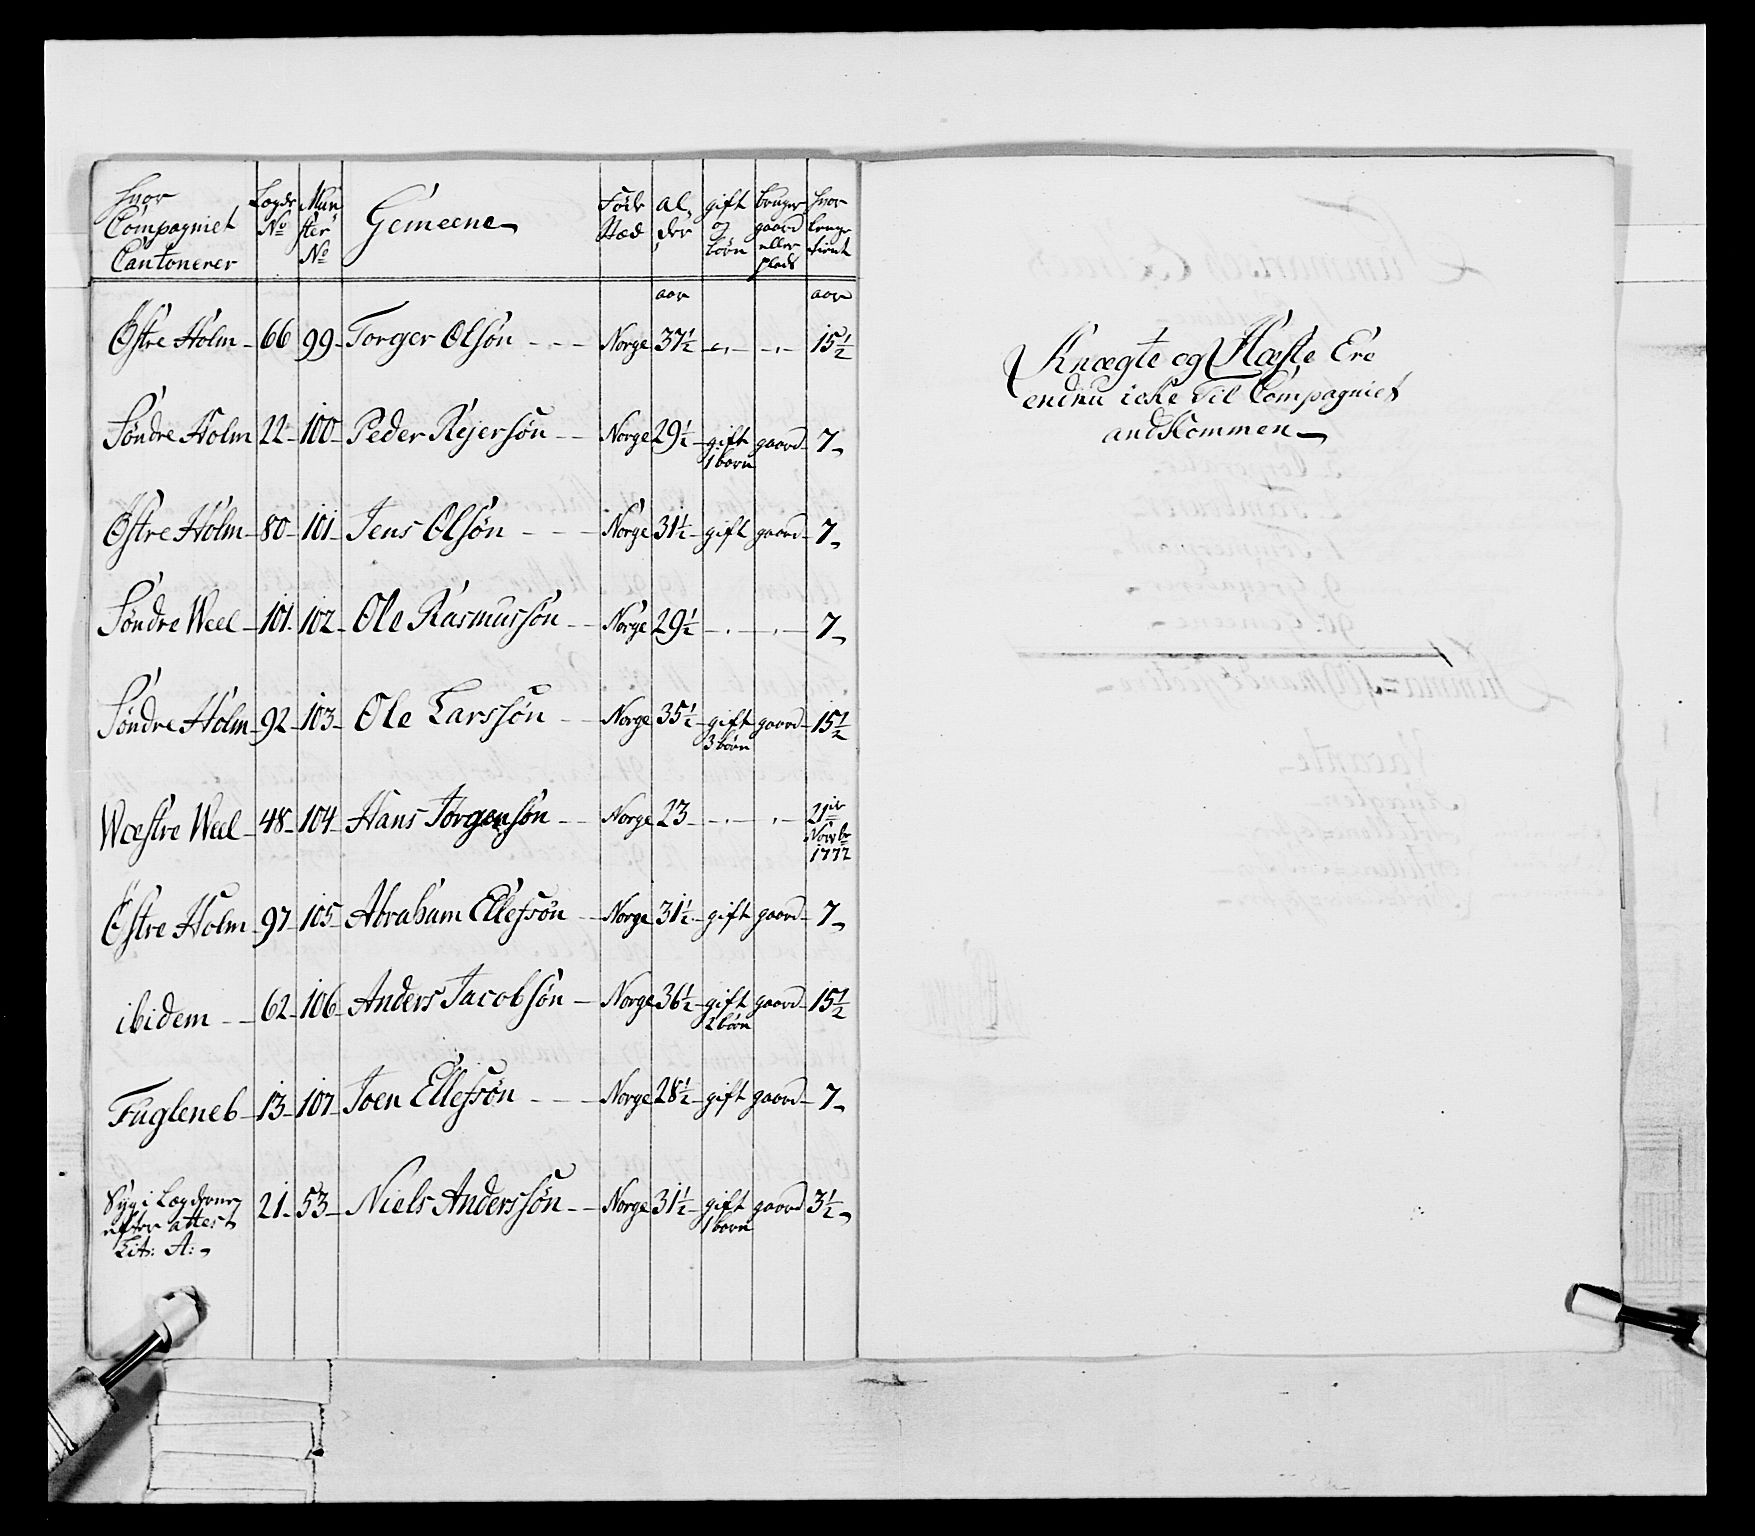 hvor Compagniet Cantonerer | Lægds No | Mun ster No | Gemeene | Føde Stæd | al der | gift og børn | bruger gaard eller plads | hvor længe tient
aar aar
Østre Holm 66 99 Torger Olsøn - - - Norge 37½ - . - - . - 15½
Søndre Holm 22 100 Peder Rejersøn - - Norge 29½ gift gaard 7
1 barn
Østre Holm 80 101 Jens Olsøn - - - Norge 31½ gift gaard 7
Søndre Weel 101 102 Ole Rasmussøn - - Norge 29½ - . - - . - 7
Søndre Holm 92 103 Ole Larssøn - - Norge 35½ gift gaard 15½
3 børn
Wæstre Weel 48 104 Hans Jørgensøn - - Norge 23 - . - - . - 21de
Novbr
1772
Østre Holm 97 105 Abraham Ellefsøn - - Norge 31½ gift gaard 7
ibidem - - 62 106 Anders Jacobsøn - Norge 36½ gift gaard 15½
2 børn
Fugleneb 13 107 Joen Ellefsøn - - - Norge 28½ gift gaard 7
Syg i Lægderne 21 53 Niels Anderssøn - - Norge 31½ gift gaard 3½
efter attest 1 barn
Lit: A:
Knægte og Hæste Ere
endnu icke til Compagniet
andkommen